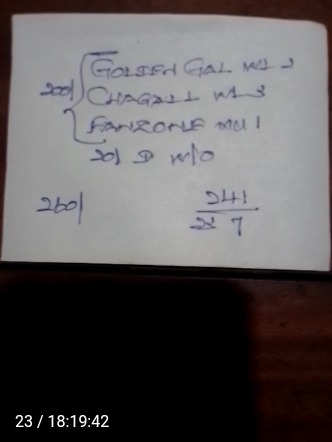 200/ GOLDEN GAL W1 2
CHAGALL W1 3
FANZONE MU 1
20/ D W/O
260/ 241
7
23 / 18:19:42